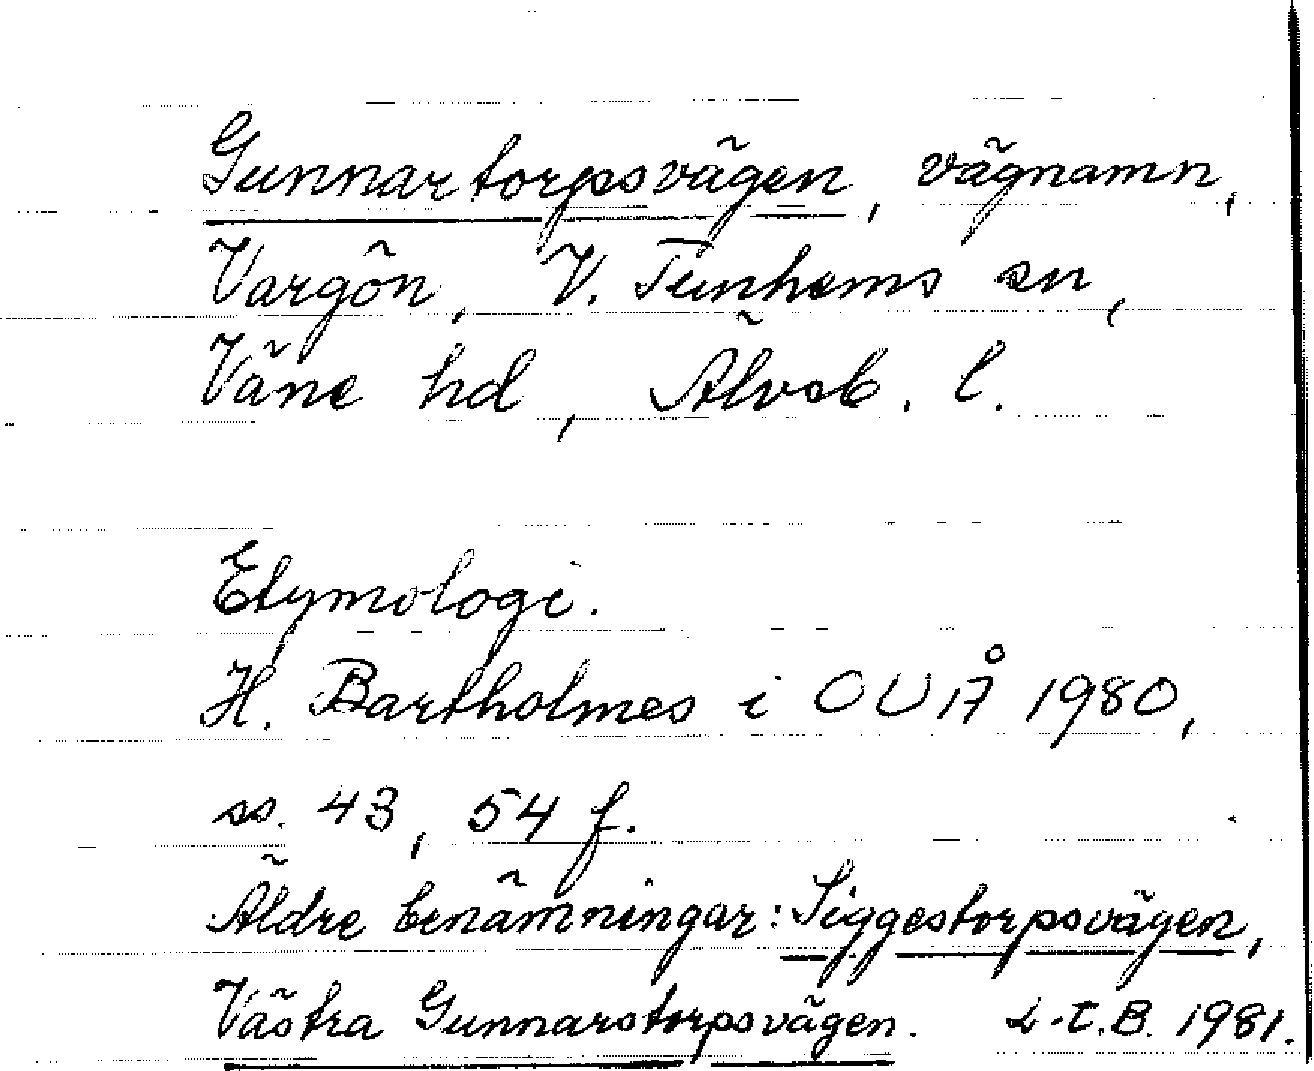 Gunnartorpsvägen, vägnamn,
Vargön, V. Tunhems sn,
Väne hd, Älvsb. l.
Etymologi.
H. Bartholmes i OUÅ 1980,
ss. 43, 54 f.
Äldre benämningar: Siggestorpsvägen,
Västra Gunnarstorpsvägen. L-E.B. 1981.